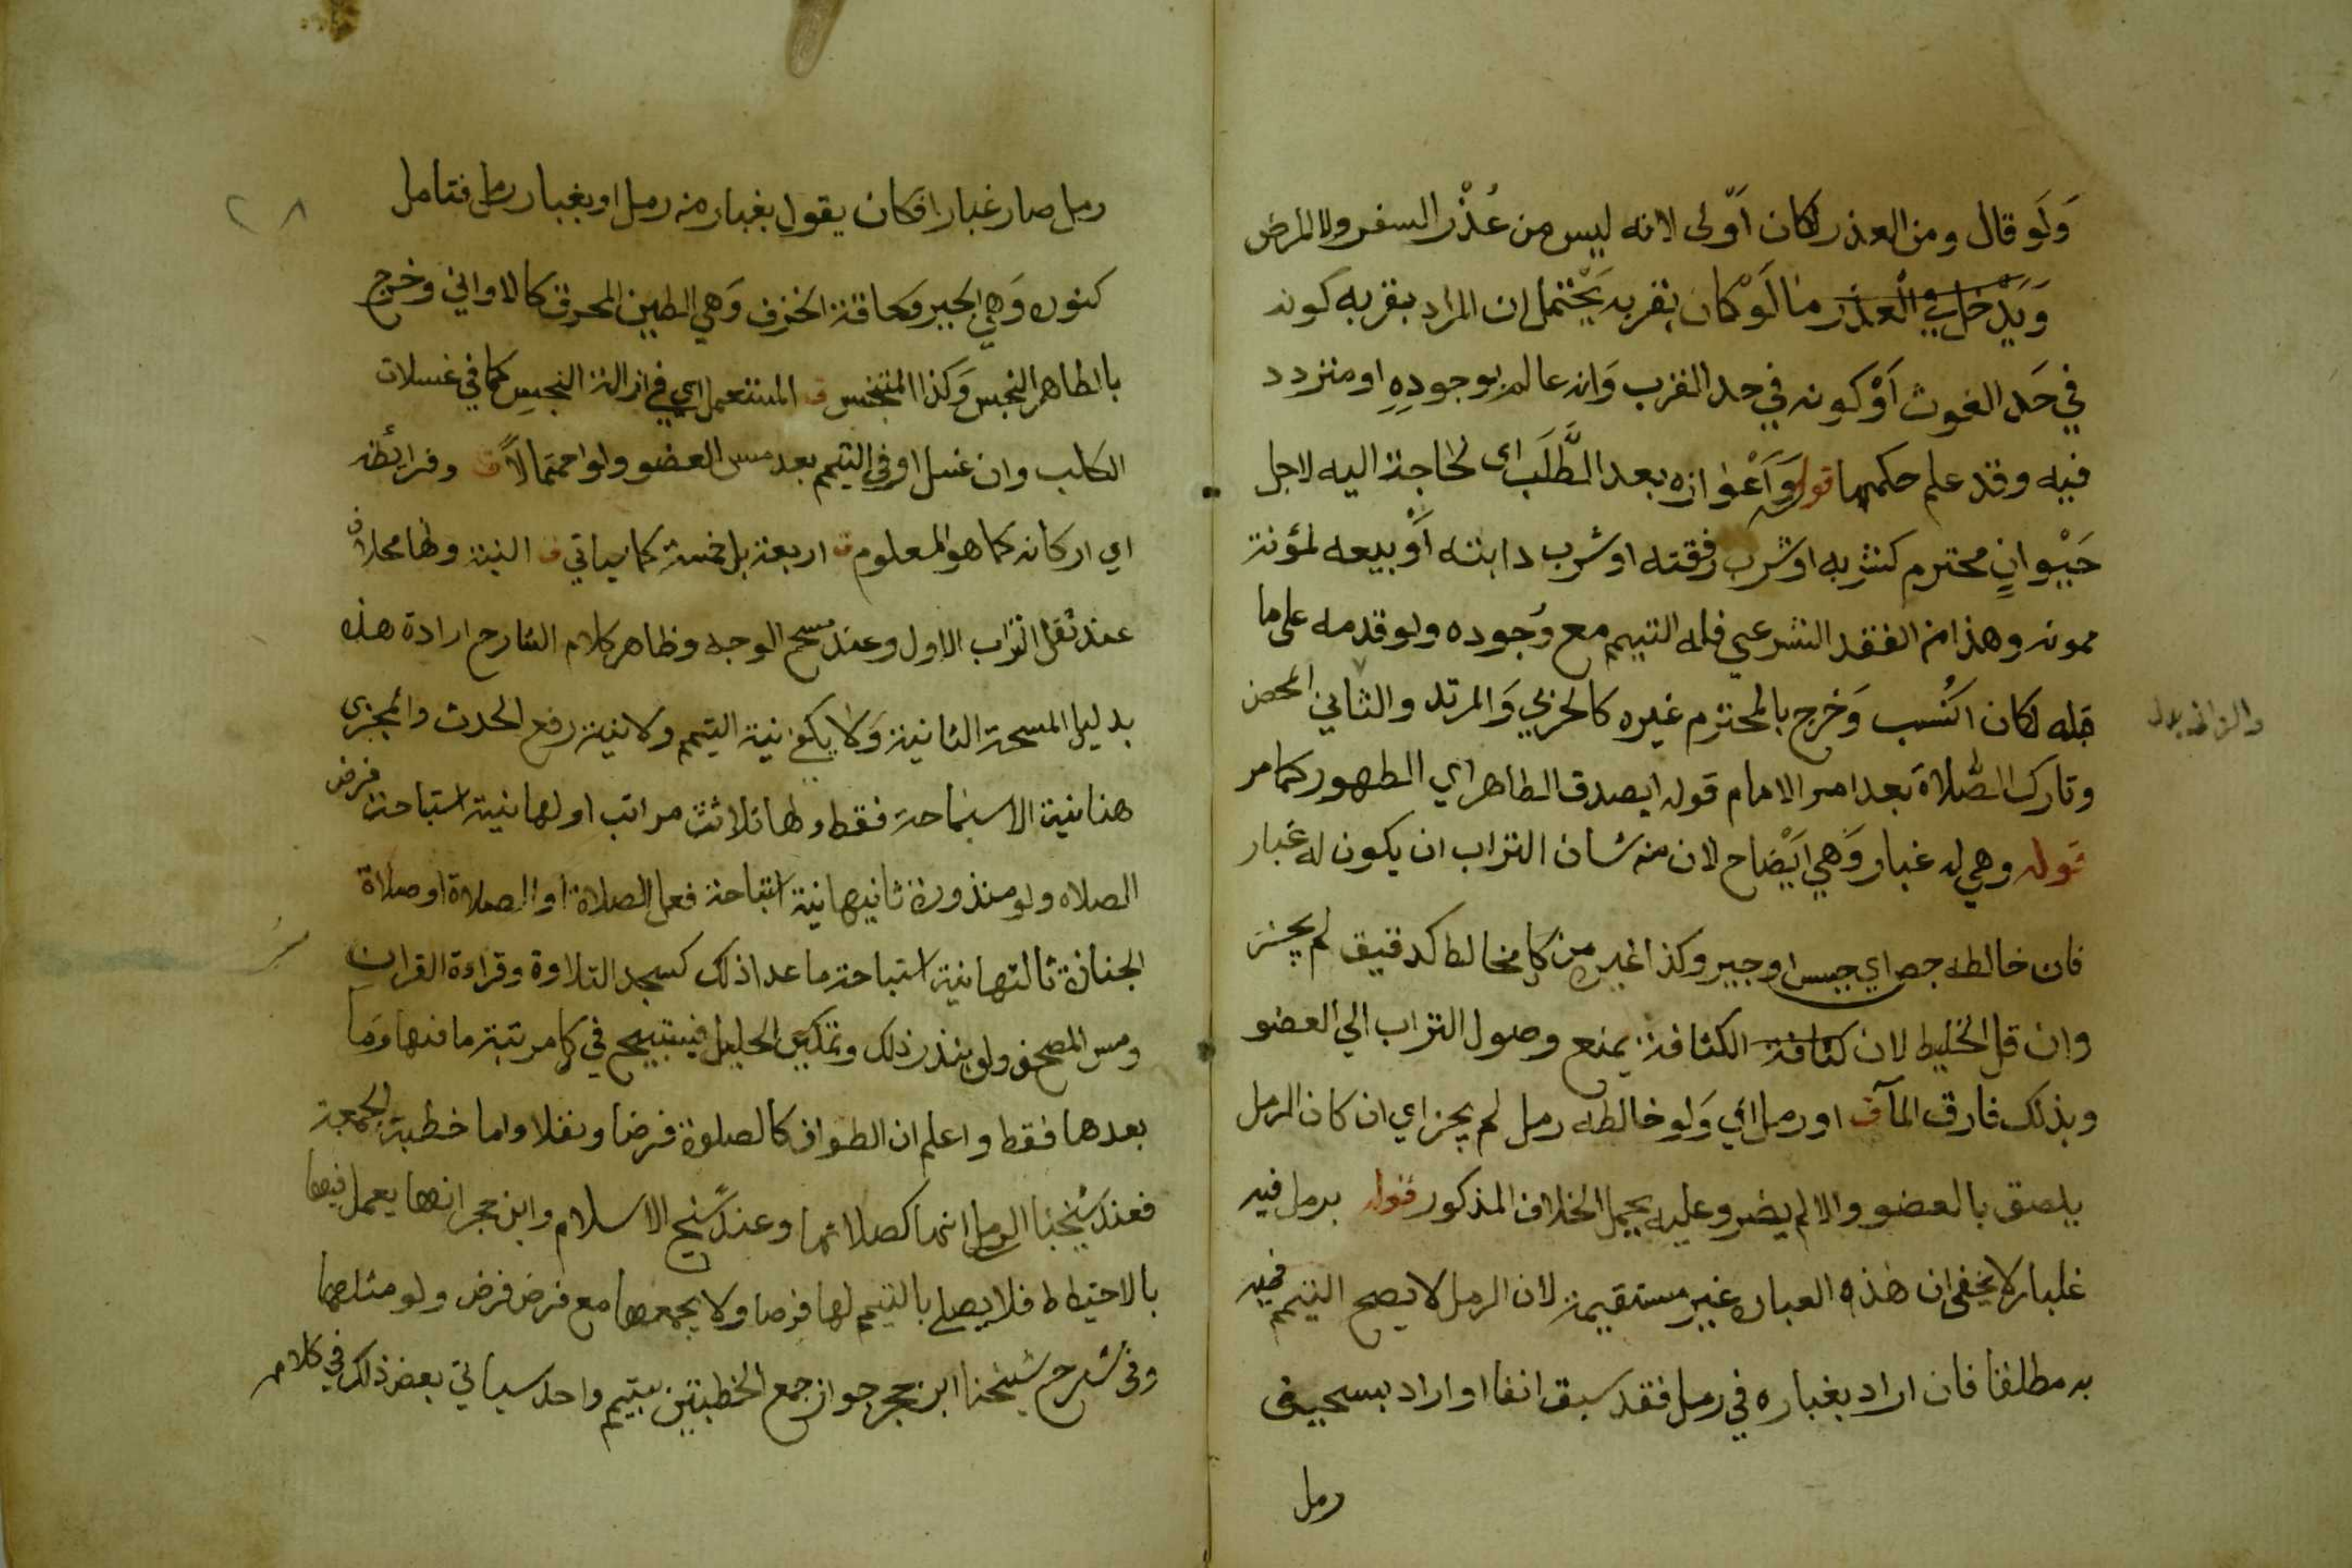 وَلَو قال ومن العذر لكان اَوّلى لانه ليس من عُذْر السفر ولا المرض
وَيَدْخل في العذر ما لَوْ كان بقربه يَحْتمل ان المراد بقربه كونه
في حَد الغوث اَوْ كونه في حد القرب وَانه عالم بوجودِهِ او متردد
فيه وقد علم حكمهما قوله وَاَعْوازه بعد الطَّلَب اى لحاجة اليه لاجل
حَيْوانٍ محترم كشربه او شرب رفقته او شرب دابته اَوْ بيعه لمؤنة
ممونه وهذا من الفقد الشرعي فله التيمم مع وُجوده ولو قدمه على ما
قبله لكان اَنُسب وَخرج بالمحترم غيره كالحربي وَالمرتد والثاني المحصن
وتارك الصَّلاة بعد امر الامام قوله ايصدق الطاهر اي الطهور كما مر
قوله وهي له غبار وَهي ايْضاح لان منه شان التراب ان يكون له غبار
فان خالطه جص اي جبس او جير وكذا غيره من كل مخالط كدقيق لم يجز
وان قل الخليط لان كثافة الكثافة يمنع وصول التراب الي العضو
وبذلك فارق المآ ق او رمل اي وَلو خالطه رمل لم يجز اي ان كان الرمل
يلصق بالعضو والا لم يضر وعليه يحمل الخلاف المذكور قوله برمل فيه
غلبار لا يخفى ان هذه العباره غير مستقيمة لان الرمل لا يصح التيمم فيه
به مطلقا فان اراد بغباره في رمل فقد سبق انفا او اراد بسحيق
رمل
رمل صار غبارا فكان يقول بغبار من رمل او بغبار رمل فتامل
كنوره وَهي الجير وَكحاقة الخزف وَهي الطين المحرق كالاواني وخرج
بالطاهر النجس وَكذا المتنجس ق المستعمل اي في ازالة النجس كما في غسلات
الكلب وان غسل او في التيمم بعد مس العضو ولو احتمالاً ق وفرائضه
اي اركانه كما هو المعلوم ق اربعة بل خمسة كما سياتي ق النية ولها محلان
عند نقل التراب الاول وعند مسح الوجه وظاهر كلام الشارح ارادة هذه
بدليل المسحة الثانية وَلا يكفي نية التيمم ولا نية رفع الحدث والمجزى
هنا نية الاستباحة فقط ولها ثلاثة مراتب اولها نية استباحة فرض
الصلاه ولو منذورة ثانيها نية استباحة فعل الصلاة او الصلاة او صلاة
الجنازة ثالثها نية استباحة ما عدا ذلك كسجد التلاوة وقراءة القران
ومس المصحف ولو بنذر ذلك وتمكين الحليل فيستبيح في كل مرتبة ما فيها وَما
بعدها فقط واعلم ان الطواف كالصلوة فرضا ونفلا واما خطبة الجمعة
فعند شيخنا الرملي انها كصلاتها وعند شيخ الاسلام وابن حجر انها يعمل فيها
بالاحتياط فلا يصلي بالتيمم لها فرضا ولا يجمعها مع فرض فرض ولو مثلها
وفى شرح شيخنا ابن حجر جواز جمع الخطبتين بتيمم واحد سياتي بعض ذلك في كلامه